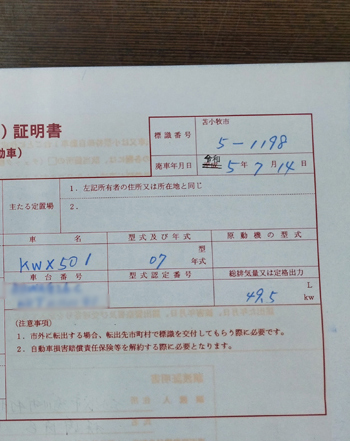 ）証明書
動車）
標識番号
苫小牧市
5-1198
廃車年月日
令和 5年 7月 14日
主たる定置場
1．左記所有者の住所又は所在地と同じ
2．
車 名
型式及び年式
原動機の型式
KWX501
07
型
年式
車台番号
型式認定番号
総排気量又は定格出力
49.5
L
kw
（注意事項）
1．市外に転出する場合、転出先市町村で標識を交付してもらう際に必要です。
2．自動車損害賠償責任保険等を解約する際に必要となります。